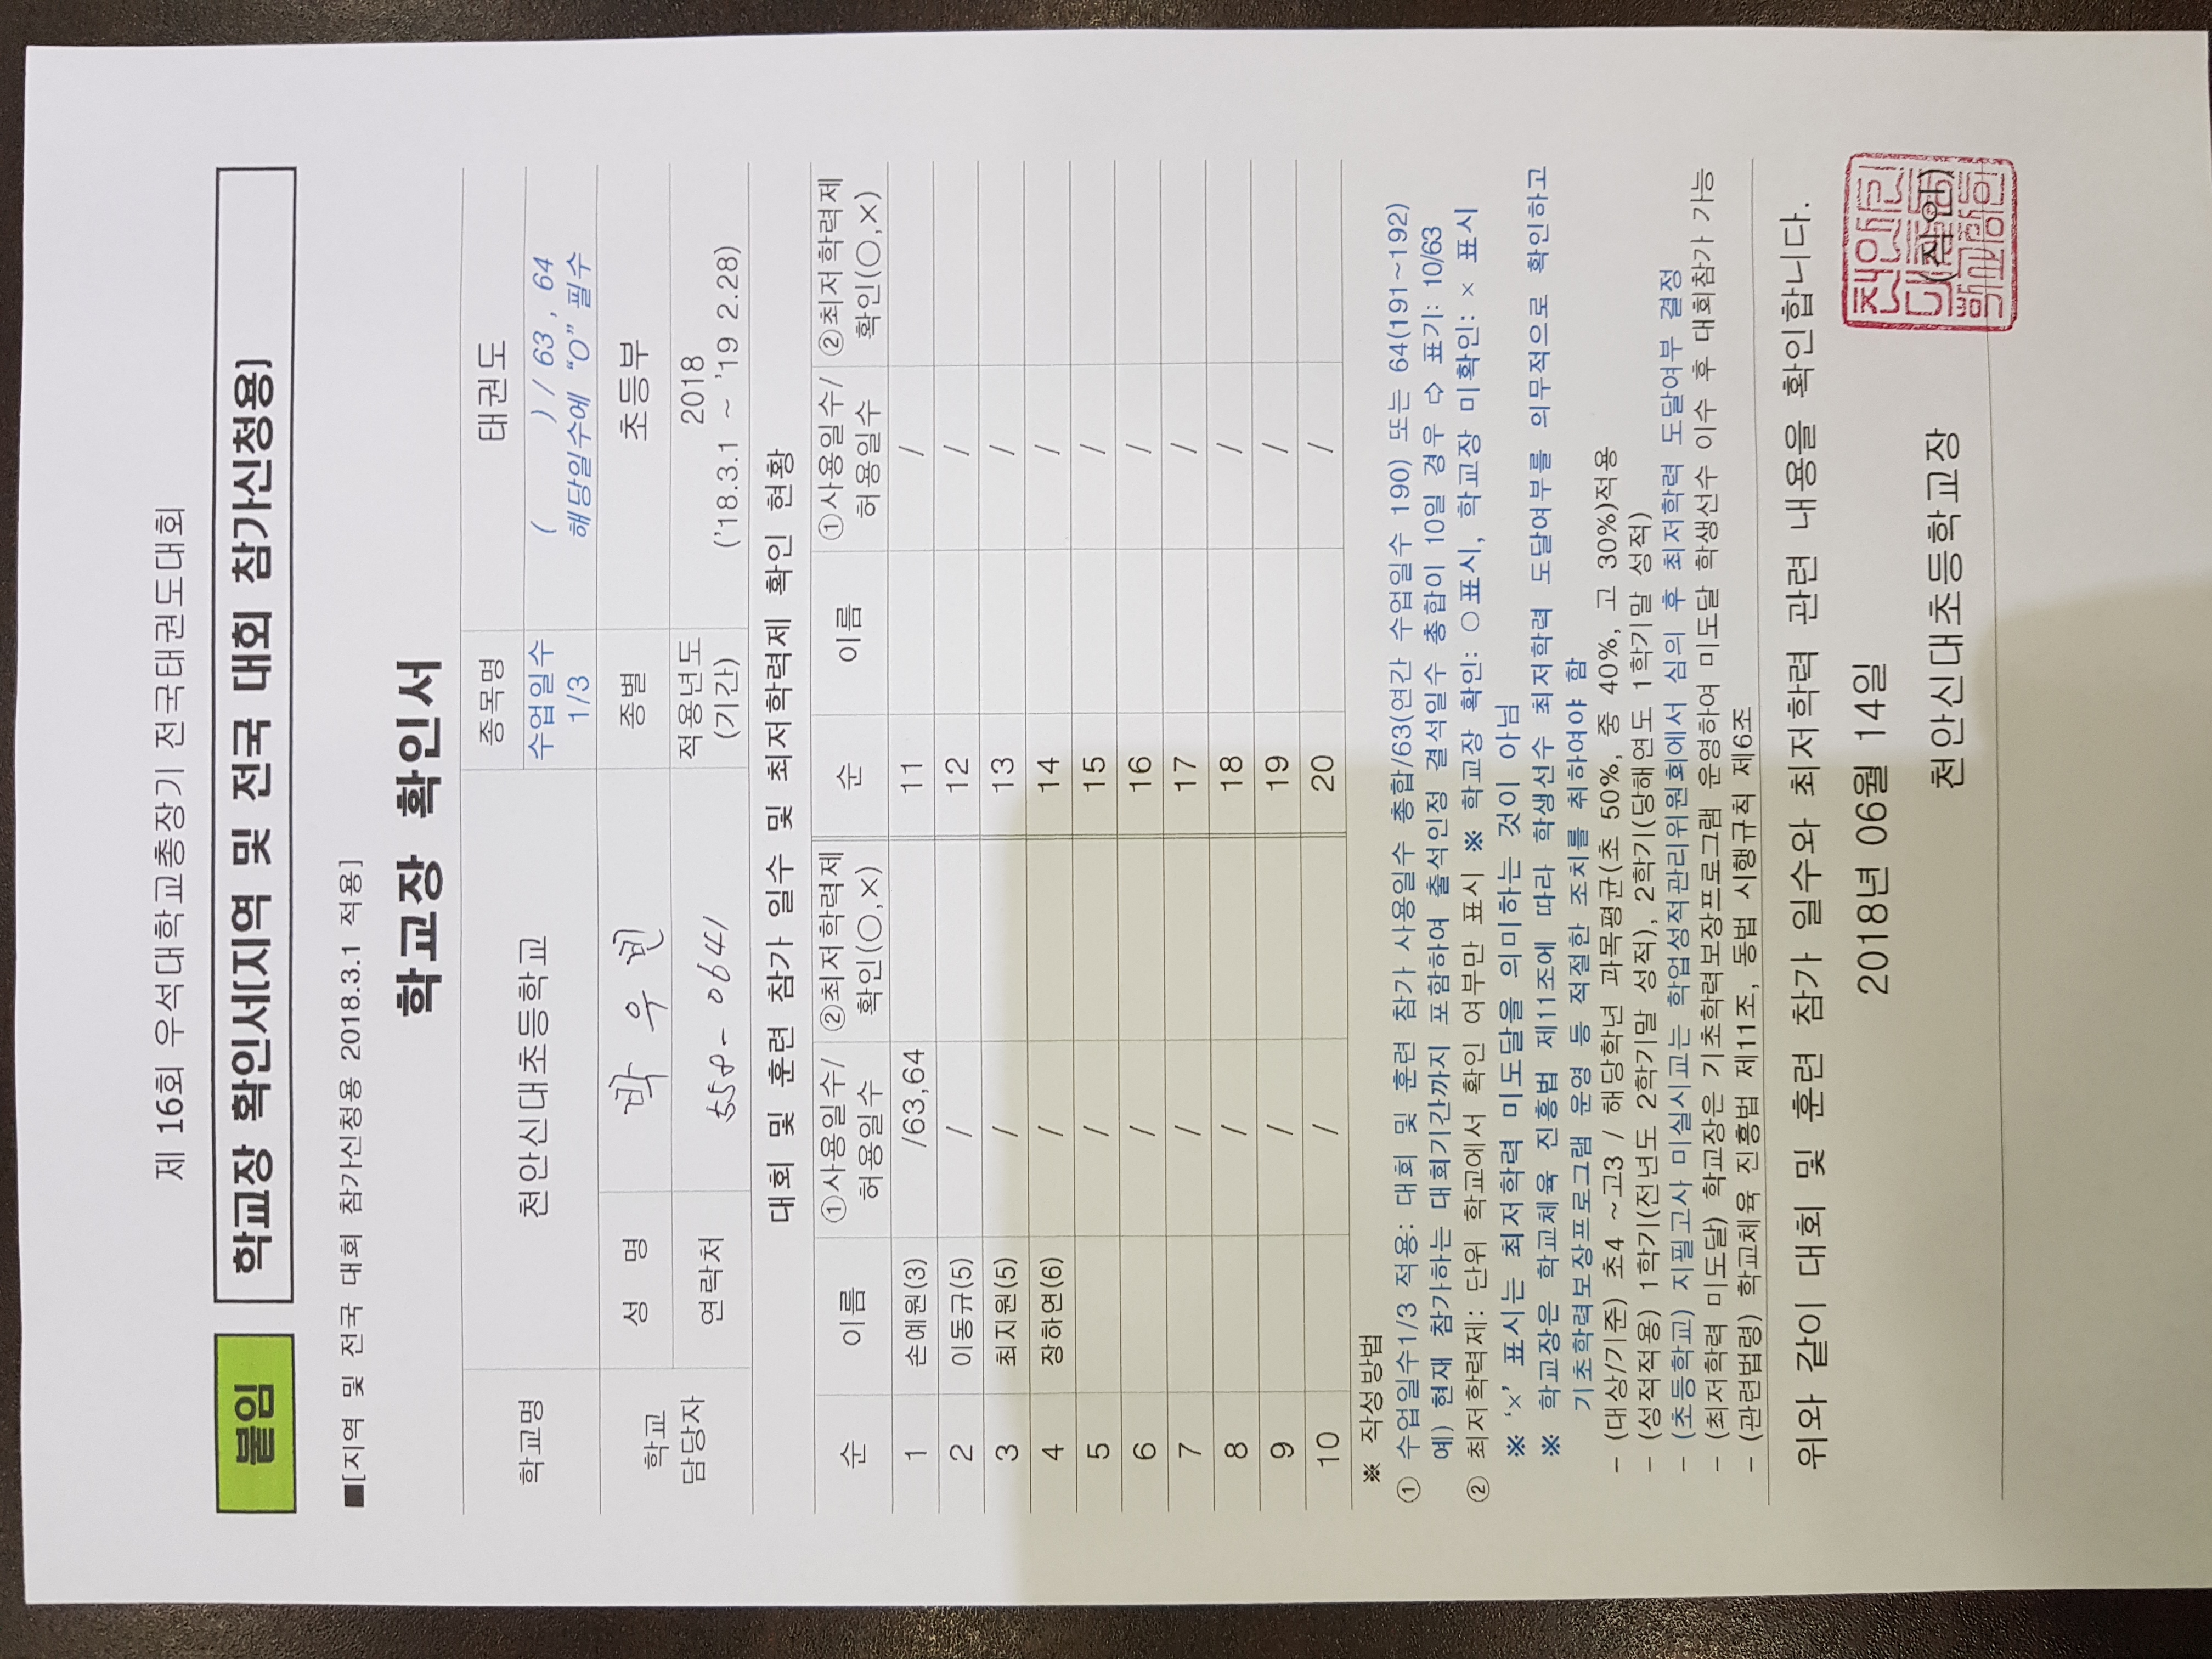 제 16회 우석대학교총장기 전국태권도대회
붙임 학교장 확인서(지역 및 전국 대회 참가신청용)
■[지역 및 전국 대회 참가신청용 2018.3.1 적용]
학교장 확인서
학교명 천안신대초등학교 종목명 태권도
수업일수 1/3 ( ) / 63 , 64
해당일수에 “O” 필수
학교 담당자 성 명 박우빈 종별 초등부
연락처 558-0641 적용년도 (기간) 2018
('18.3.1 ~ '19 2.28)
대회 및 훈련 참가 일수 및 최저학력제 확인 현황
순 이름 ①사용일수/허용일수 ②최저학력제 확인(○,×) 순 이름 ①사용일수/허용일수 ②최저학력제 확인(○,×)
1 손예원(3) /63,64 11 /
2 이동규(5) / 12 /
3 최지원(5) / 13 /
4 장하연(6) / 14 /
5 / 15 /
6 / 16 /
7 / 17 /
8 / 18 /
9 / 19 /
10 / 20 /
※ 작성방법
① 수업일수1/3 적용: 대회 및 훈련 참가 사용일수 총합/63(연간 수업일수 190) 또는 64(191~192)
예) 현재 참가하는 대회기간까지 포함하여 출석인정 결석일수 총합이 10일 경우 ⇨ 표기: 10/63
② 최저학력제: 단위 학교에서 확인 여부만 표시 ※ 학교장 확인: ○표시, 학교장 미확인: × 표시
※ '×' 표시는 최저학력 미도달을 의미하는 것이 아님
※ 학교장은 학교체육 진흥법 제11조에 따라 학생선수 최저학력 도달여부를 의무적으로 확인하고
기초학력보장프로그램 운영 등 적절한 조치를 취하여야 함
- (대상/기준) 초4 ~고3 / 해당학년 과목평균(초 50%, 중 40%, 고 30%)적용
- (성적적용) 1학기(전년도 2학기말 성적), 2학기(당해연도 1학기말 성적)
- (초등학교) 지필고사 미실시교는 학업성적관리위원회에서 심의 후 최저학력 도달여부 결정
- (최저학력 미도달) 학교장은 기초학력보장프로그램 운영하여 미도달 학생선수 이수 후 대회참가 가능
- (관련법령) 학교체육 진흥법 제11조, 동법 시행규칙 제6조
위와 같이 대회 및 훈련 참가 일수와 최저학력 관련 내용을 확인합니다.
2018년 06월 14일
천안신대초등학교장 (직인)